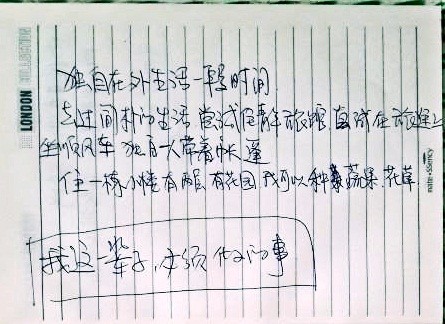 LONDON
独自在外生活一段时间
去过简朴的生活 尝试住青年旅馆 真诚在旅途上
坐顺风车 独自一人带着帐篷
住一栋小楼有两层 有花园 我可以种蔬果 花草
我这一辈子,必须做的事